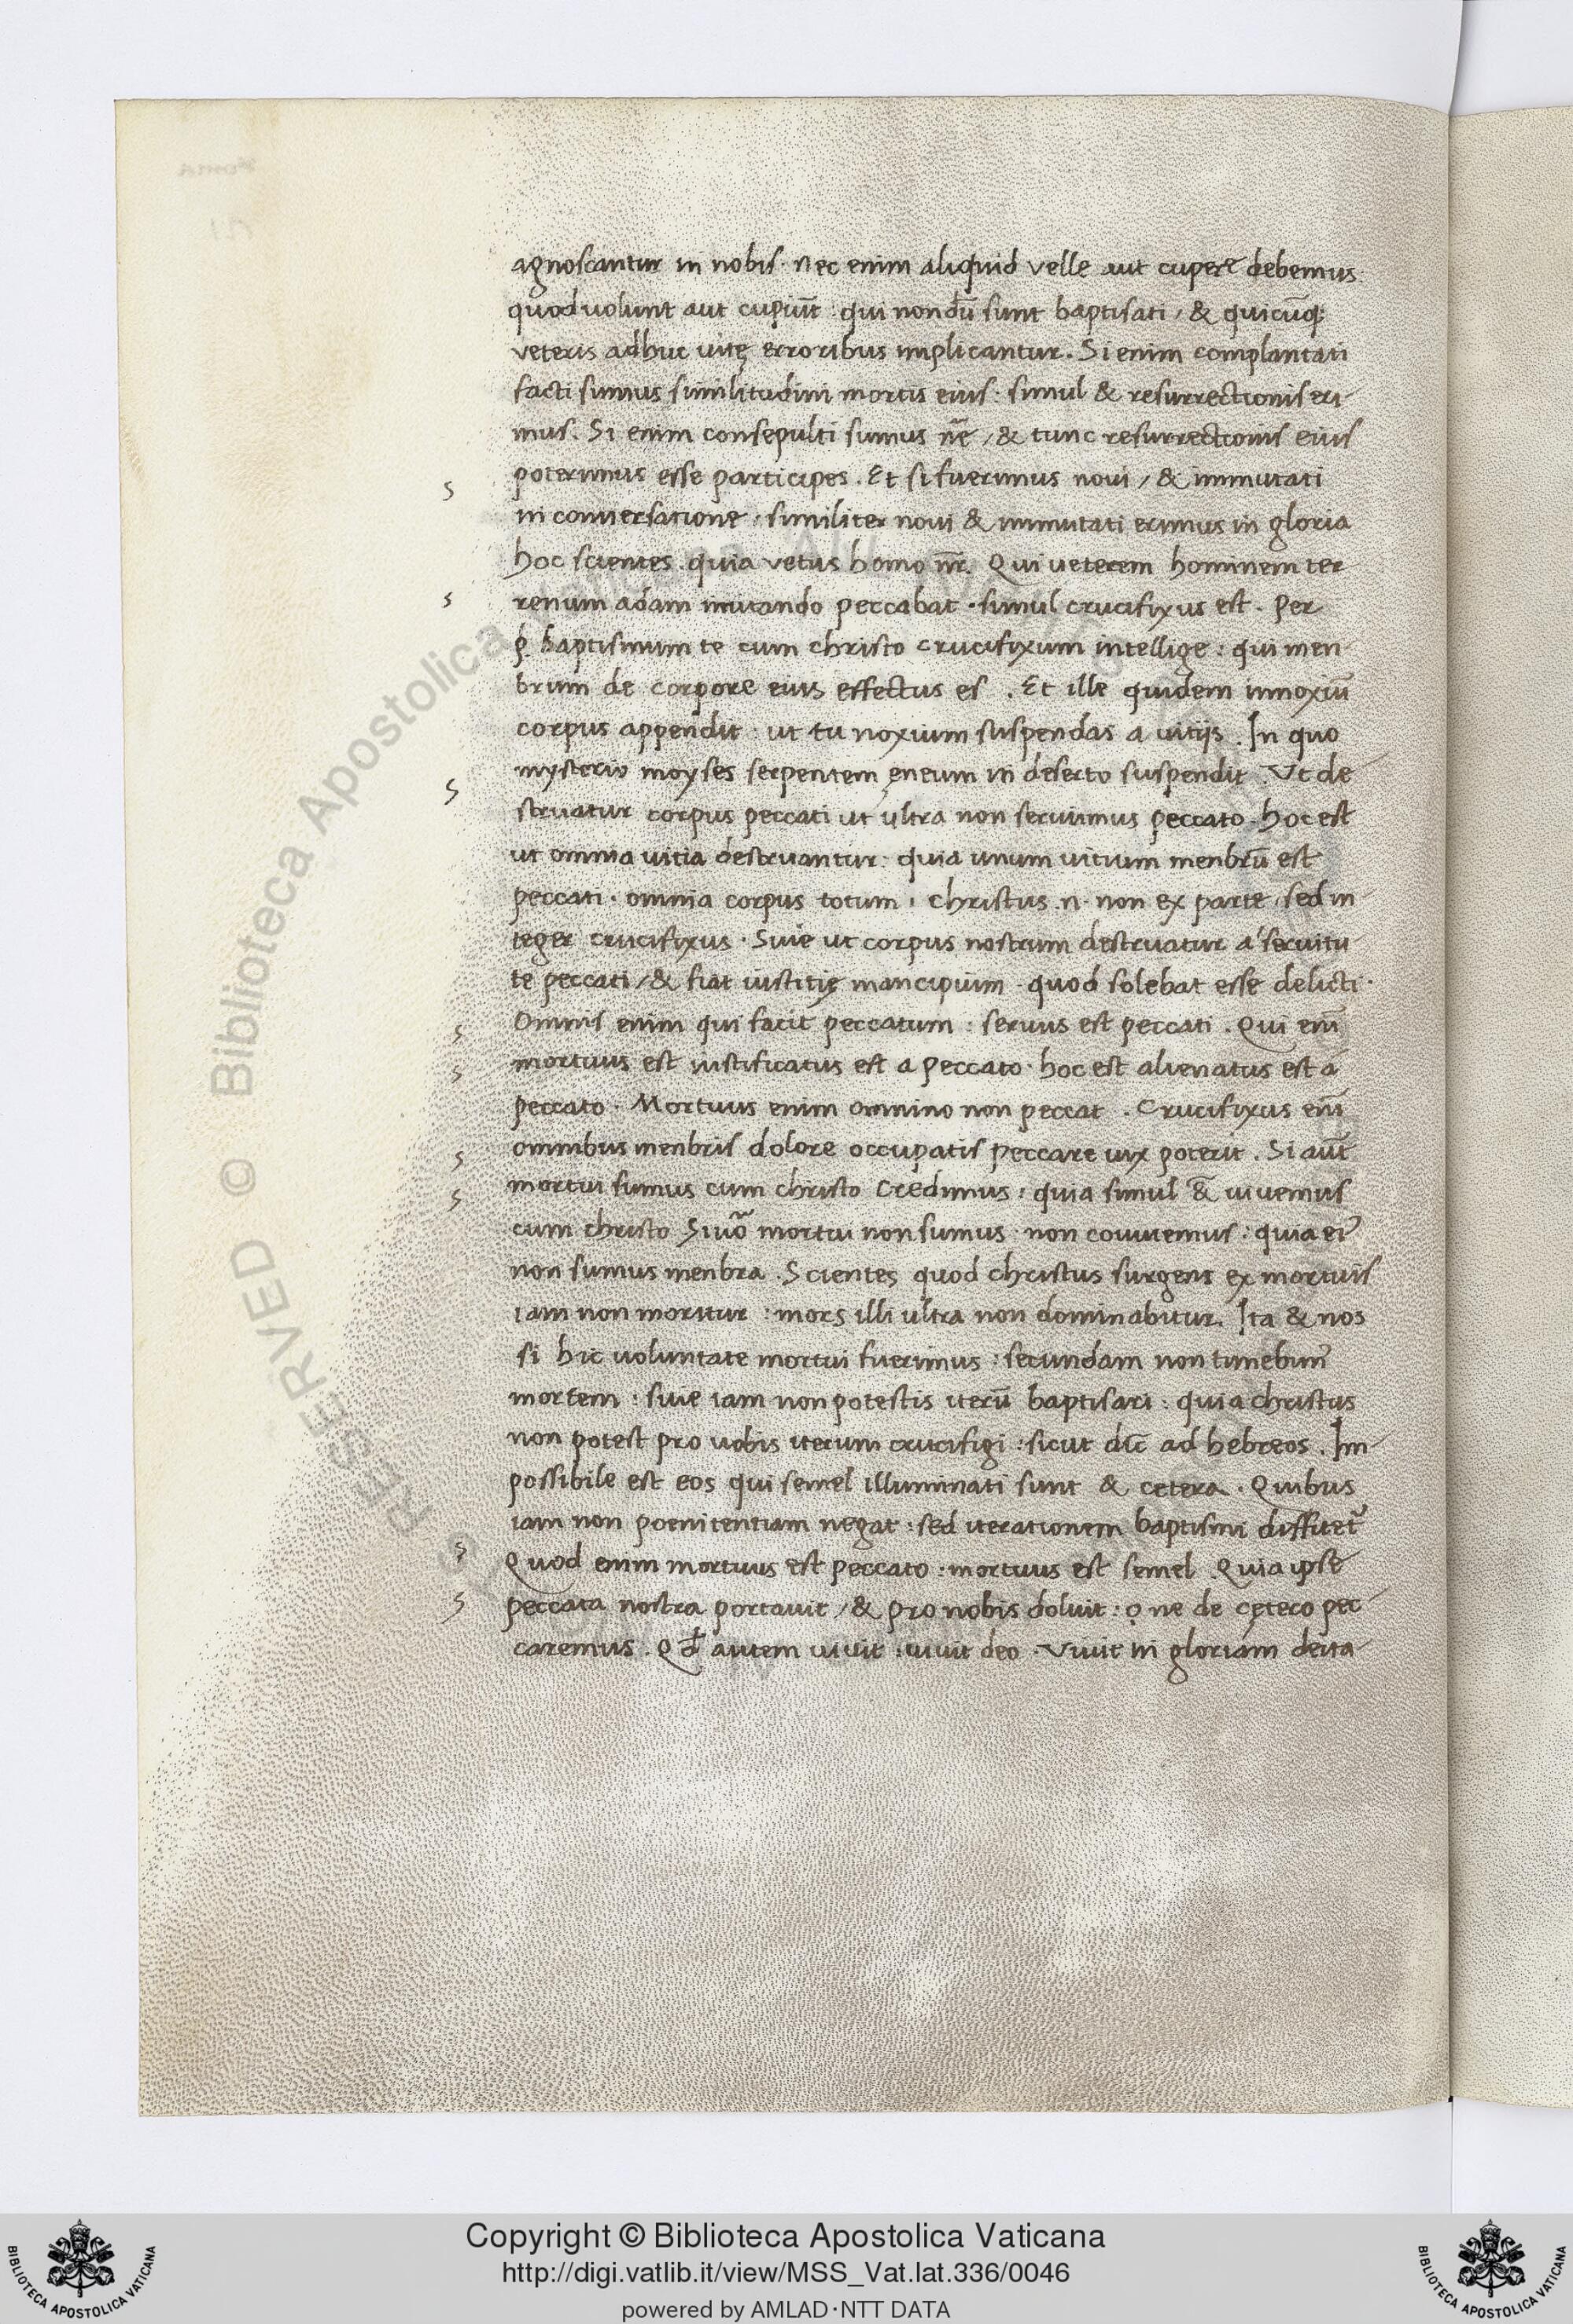 agnoscantur in nobis· nec enim aliquid velle aut cupere debemus·
quod uolunt aut cupiūt : qui nondū sunt baptisati / & quicūq;
veteris adhuc uitę erroribus implicantur. Si enim complantati
facti sumus similitudini mortis eius : simul & resurrectionis eri
mus. Si enim consepulti sumus nc̄ / & tunc resurrectionis eius
poterimus esse participes. Et si fuerimus noui / & immutati
in conuersatione · similiter noui & immutati erimus in gloria
hoc scientes. quia vetus homo nr̄. Qui ueterem hominem ter
renum adam imitando peccabat · simul crucifixus est. per
ꝑ. baptismum te cum christo crucifixum intellige : qui men
brum de corpore eius effectus es . Et ille quidem innoxiū
corpus appendit : ut tu noxium suspendas a uitijs . In quo
mysterio moyses serpentem ęneum in deserto suspendit Vt de
struatur corpus peccati ut ultra non seruimus peccato. hoc est
ut omnia uitia destruantur : quia unum uitium menbrū est
peccati · omnia corpus totum · christus .n. non ex parte · sed in
teger crucifixus · Siue ut corpus nostrum destruatur a seruitu
te peccati / & fiat iustitię mancipium · quod solebat esse delicti ·
Omnis enim qui facit peccatum : seruus est peccati . Qui em̄
mortuus est iustificatus est a peccato · hoc est alienatus est a
peccato · Mortuus enim omnino non peccat . Crucifixus em̄
omnibus menbris dolore occupatis peccare uix poterit . Si aut̄
mortui sumus cum christo credimus : quia simul & uiuemus
cum christo Si uo᷈ mortui non sumus · non conuiuemus : quia ei᷈
non sumus menbra . Scientes quod christus surgens ex mortuis
iam non moritur : mors illi ultra non dominabitur. Ita & nos
si hic uoluntate mortui fuerimus : secundam non timebim᷈
mortem : siue iam non potestis iterū baptisari : quia christus
non potest pro uobis iterum crucifigi : sicut dic̄ ad hebreos . Im
possibile est eos qui semel illuminati sunt & cetera . Quibus
iam non poenitentiam negat : sed iterationem baptismi diffitet᷈
Quod enim mortuus est peccato : mortuus est semel . Quia ipse
peccata nostra portauit / & pro nobis doluit : ꝙ ne de cętero pec
caremus . Qd̄ autem uiuit : uiuit deo . Viuit in gloriam deita
RESERVED © Biblioteca Apostolica
Copyright © Biblioteca Apostolica Vaticana
http://digi.vatlib.it/view/MSS_Vat.lat.336/0046
powered by AMLAD·NTT DATA
BIBLIOTECA APOSTOLICA VATICANA
BIBLIOTECA APOSTOLICA VATICANA